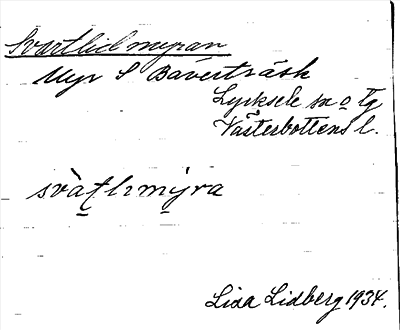 Svartlidmyran
Myr S Bäverträsk
Lycksele sn o tg
Västerbottens l.
svàtlımýra
Lisa Lidberg 1934.